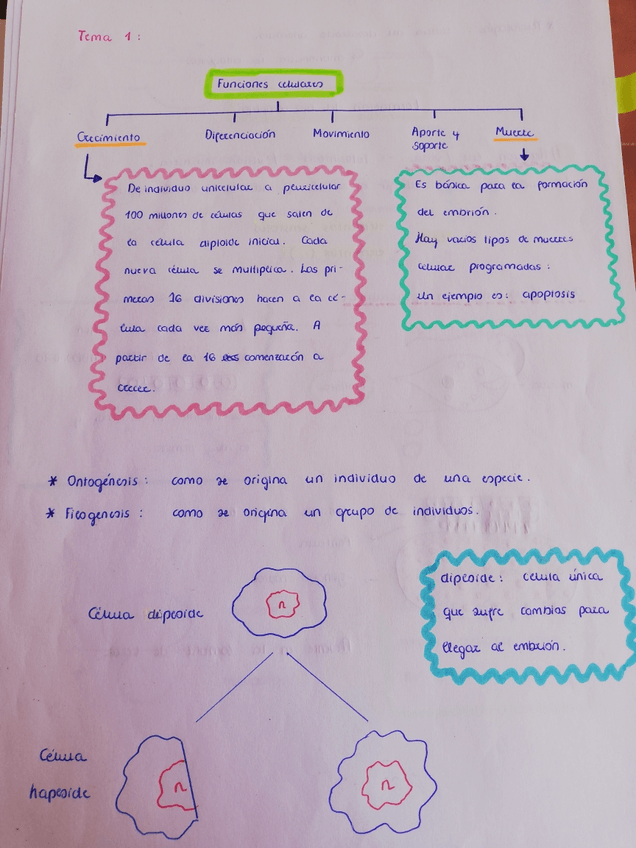 Tema 1:
Funciones celulares
Crecimiento
Diferenciación
Movimiento
Aporte y
soporte
Muerte
De individuo unicelular a pluricelular
100 millones de células que salen de
la célula diploide inicial. Cada
nueva célula se multiplica. Las pri-
meras 16 divisiones hacen a la cé-
lula cada vez más pequeña. A
partir de la 16 comenzación a
crecer.
Es básica para la formación
del embrión.
Hay varios tipos de muertes
celular programadas:
un ejemplo es: apoptosis
* Ontogénesis: como se origina un individuo de una especie.
* Filogenesis: como se origina un grupo de individuos.
diploide: célula única
que sufre cambios para
llegar al embrión.
Célula diploide
n
Célula
haploide
n
n